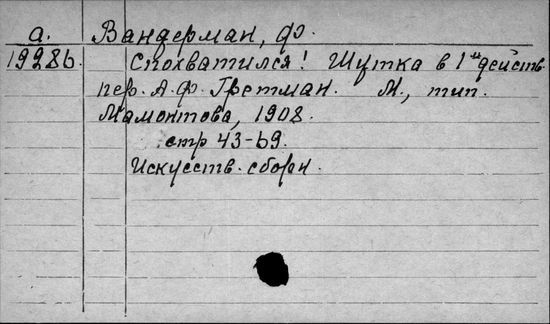 а. Вандерман, Ф.
1992 8б. Спохватился! Шутка в 1ᵐ действ.
пер. А. Ф. Гретман. М., тип.
Мамонтова, 1908.
стр 43-69.
Искусств. сборн.